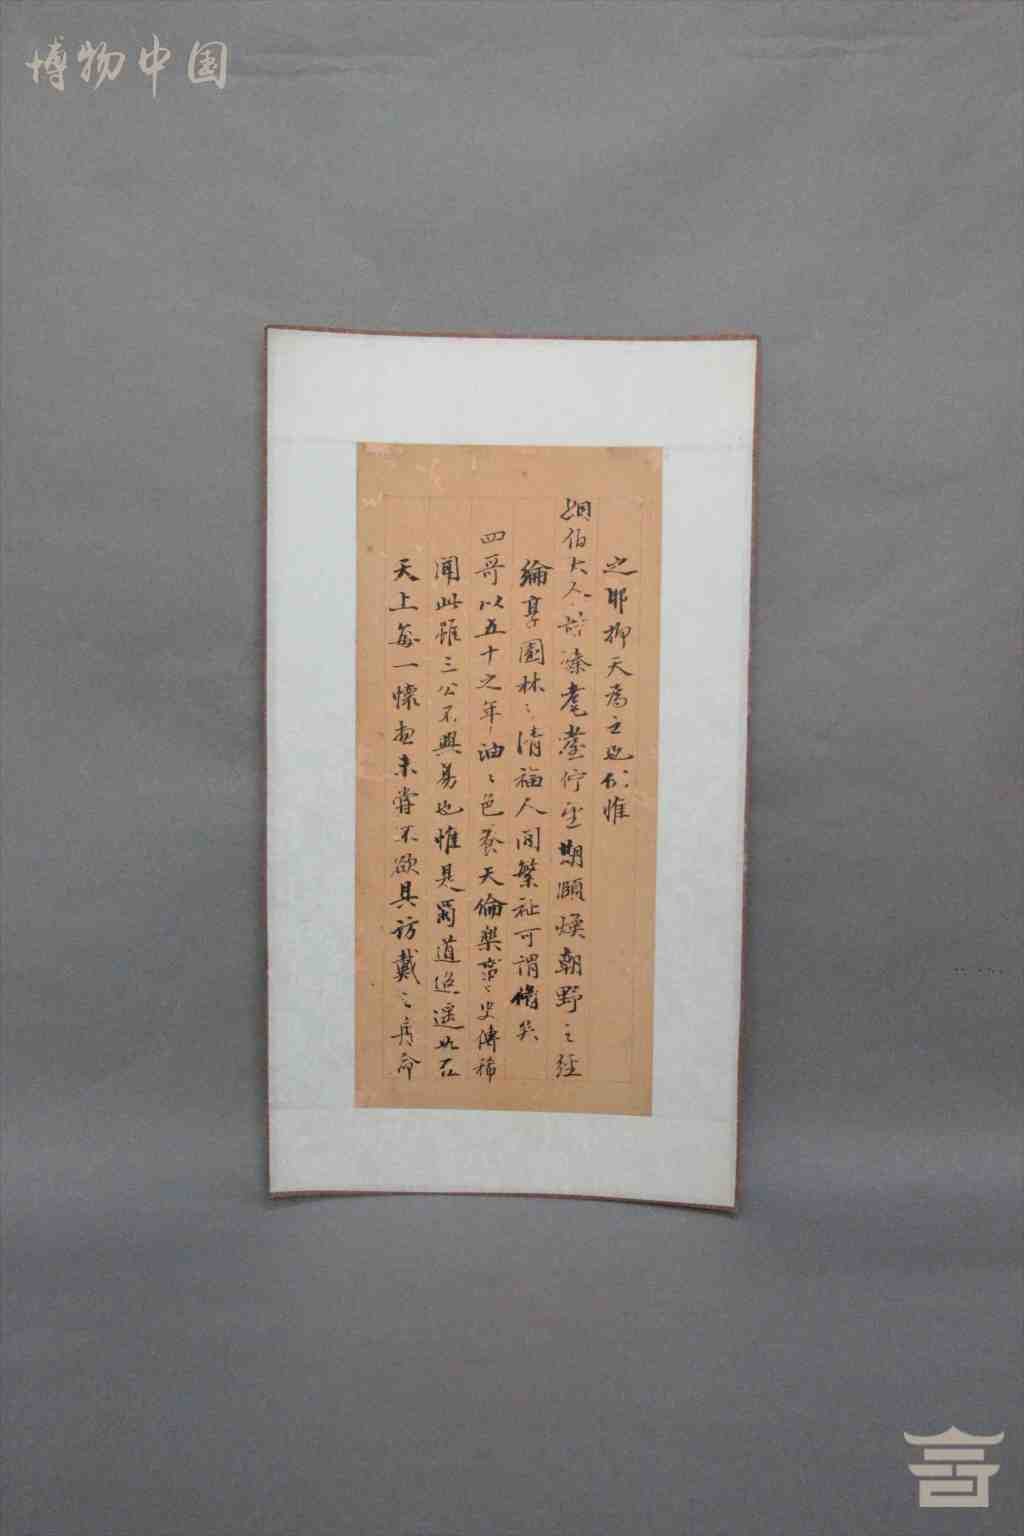 博物中国
之耶抑天為之也伏惟
姻伯大人諄臻耄耋佇望期頤煥朝野之經
綸享園林之清福人间繁祉可謂備矣
四哥以五十之年油油色養天倫樂事史傳稀
聞此雖三公不與易也惟是蜀道迢遥如在
天上每一懷想未嘗不欲具訪戴之舟命